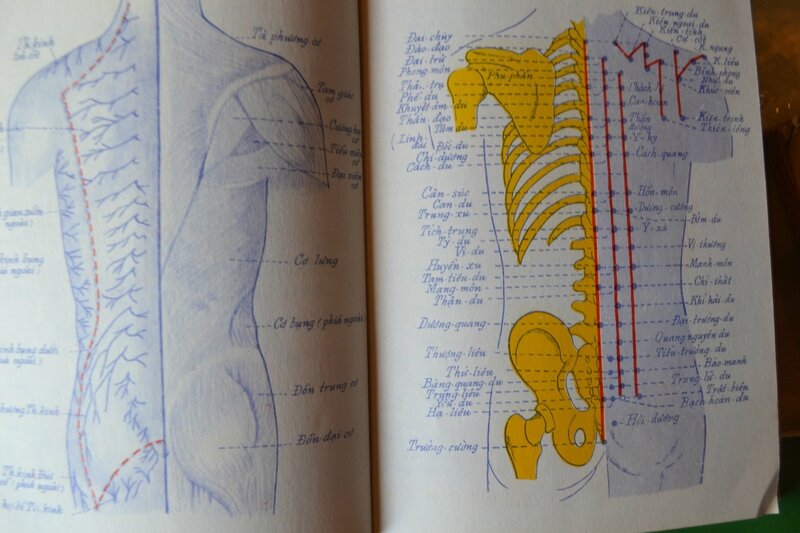 Th. kinh
Tà phương cơ
Tam giác
cơ
Tiểu viên
cơ
Đại viên
cơ
Cơ lưng
Cơ bụng (phía ngoài)
Đồn trung cơ
Đồn đại cơ
ngoài)
bụng dưới
ngoài)
Th. kinh
Th. kinh Đùi
(phía ngoài)
Đại chùy
Đào đạo
Đại trữ
Phong môn
Phế du
Khuyết âm du
Thần đạo
Tâm du
(Linh
đài
Đốc du
Chí dương
Cách du
Cân súc
Can du
Trung xu
Tích trung
Tỳ du
Vị du
Huyền xu
Tam tiêu du
Mạng môn
Thận du
Dương quang
Thượng liêu
Thứ liêu
Bàng quang du
Trung liêu
Hạ liêu
Trường cường
Phụ phân
Kiên trung du
Kiên ngoại du
Kiên tỉnh
Cự cốt
K. ngung
K. liêu
Bỉnh phong
Nhu du
Khúc viên
Kiên trinh
Thiên tông
Cao hoan
Thần
đường
Y hy
Cách quang
Hồn môn
Dương cương
Đởm du
Y xá
Vị thương
Manh môn
Chí thất
Khí hải du
Đại trường du
Quang nguyên du
Tiểu trường du
Bào manh
Trung lữ du
Trật biên
Bạch hoàn du
Hội dương